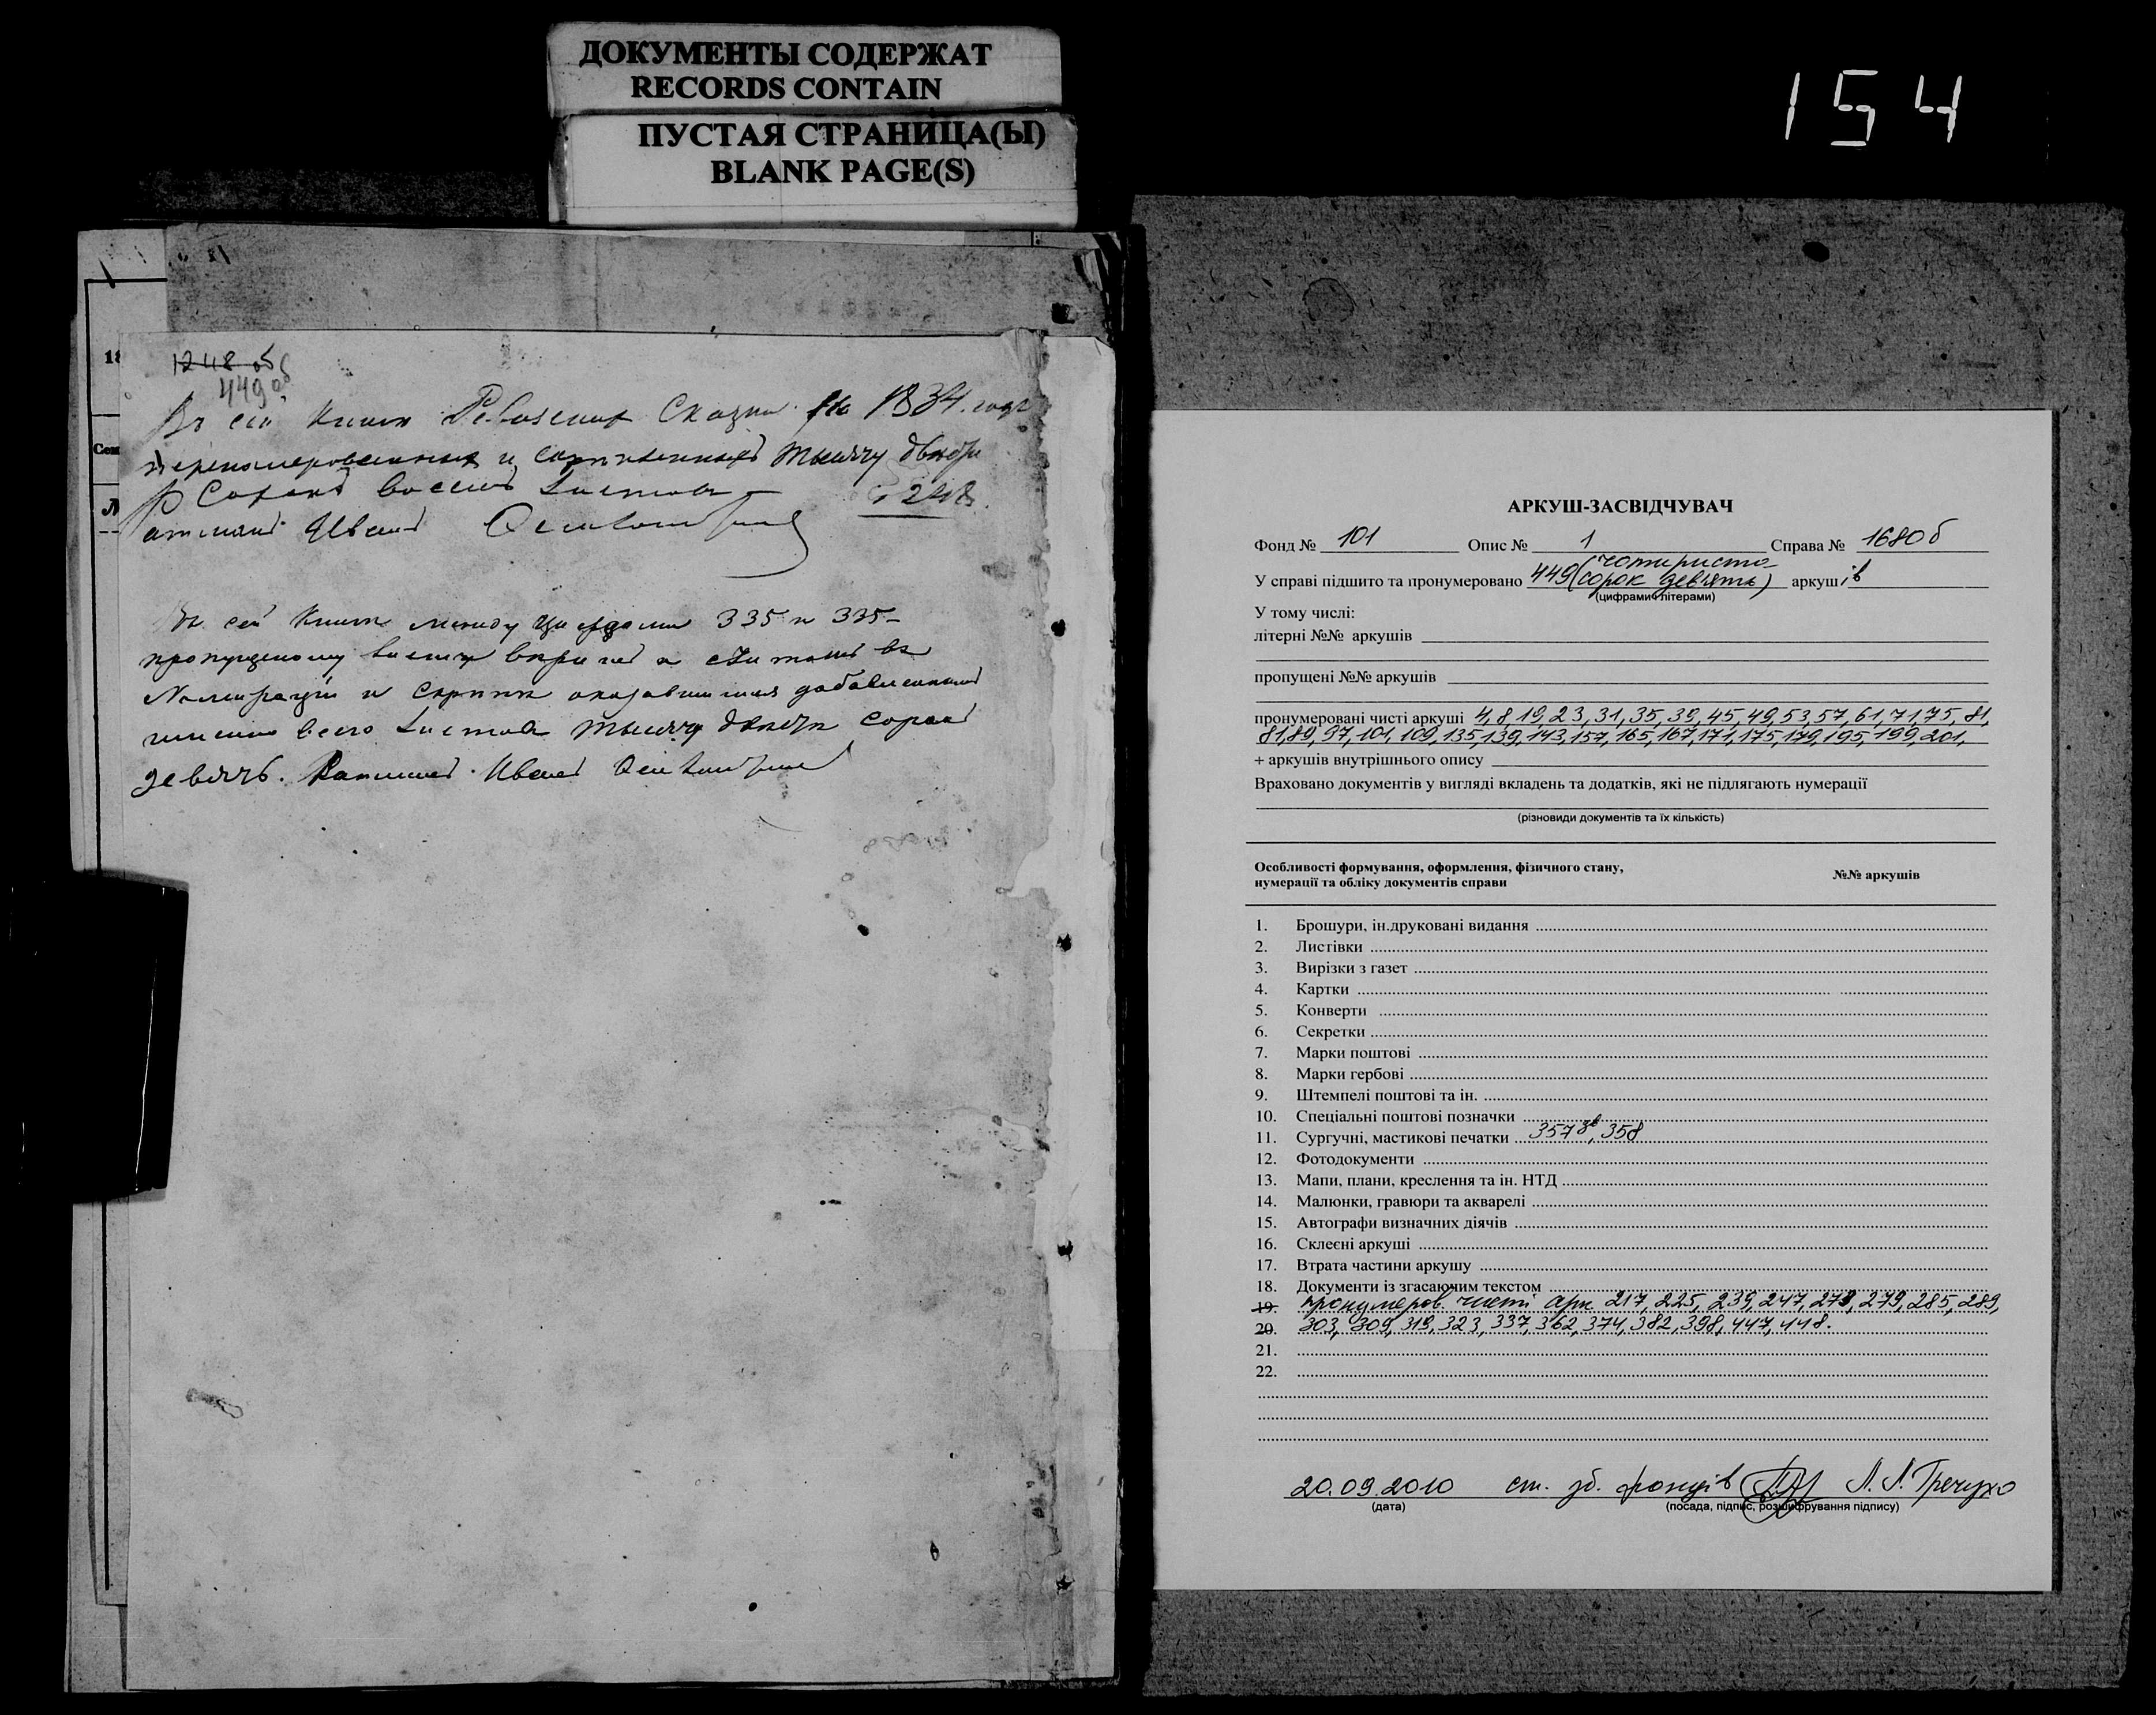 ДОКУМЕНТЫ СОДЕРЖАТ
RECORDS CONTAIN
ПУСТАЯ СТРАНИЦА(Ы)
BLANK PAGE(S)
154
1248 об
449 об
Въ сей Книги Ревизских Сказки 1834. года
перенумерованных и скрепленныхъ тысячу двести
Сорокъ восемь Листовъ
1248.
Ратманъ Иванъ
Въ сей Книги между цифрами 335 и 335
пропущеному листу
Номерации и скрепи оказавшимся добавлением
всего Листовъ тысячу двести сорокъ
девять. Ратманъ Иванъ
АРКУШ-ЗАСВІДЧУВАЧ
Фонд № 101 Опис № 1 Справа № 1680б
У справі підшито та пронумеровано 449 (чотириста сорок дев'ять) аркушів
(цифрами і літерами)
У тому числі:
літерні №№ аркушів
пропущені №№ аркушів
пронумеровані чисті аркуші 4,8,19,23,31,35,39,45,49,53,57,61,71,75,81,
81,89,97,101,109,135,139,143,157,165,167,171,175,179,195,199,201,
+ аркушів внутрішнього опису
Враховано документів у вигляді вкладень та додатків, які не підлягають нумерації
(різновиди документів та їх кількість)
Особливості формування, оформлення, фізичного стану,
нумерації та обліку документів справи
№№ аркушів
1. Брошури, ін.друковані видання
2. Листівки
3. Вирізки з газет
4. Картки
5. Конверти
6. Секретки
7. Марки поштові
8. Марки гербові
9. Штемпелі поштові та ін.
10. Спеціальні поштові позначки
11. Сургучні, мастикові печатки 357зв, 358
12. Фотодокументи
13. Мапи, плани, креслення та ін. НТД
14. Малюнки, гравюри та акварелі
15. Автографи визначних діячів
16. Склеєні аркуші
17. Втрата частини аркушу
18. Документи із згасаючим текстом
19. пронумеров. чисті арк 217,225,239,247,273,279,285,289,
20. 303,309,319,323,337,362,374,382,398,447,448.
21.
22.
20.09.2010 ст. зб. фондів Л.Л.Гречухо
(дата)
(посада, підпис, розшифрування підпису)